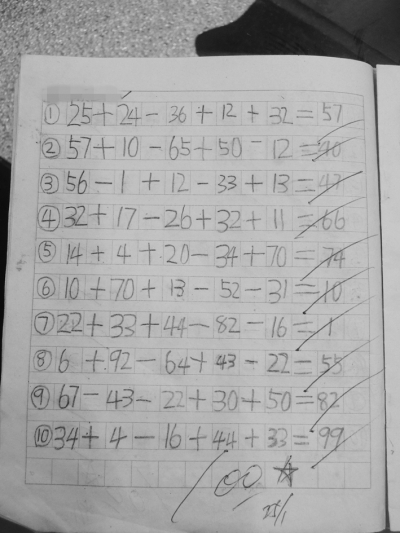 ① 25+24-36+12+32=57
② 57+10-65+50-12=40
③ 56-1+12-33+13=47
④ 32+17-26+32+11=66
⑤ 14+4+20-34+70=74
⑥ 10+70+13-52-31=10
⑦ 22+33+44-82-16=1
⑧ 6+92-64+43-22=55
⑨ 67-43-22+30+50=82
⑩ 34+4-16+44+33=99
100